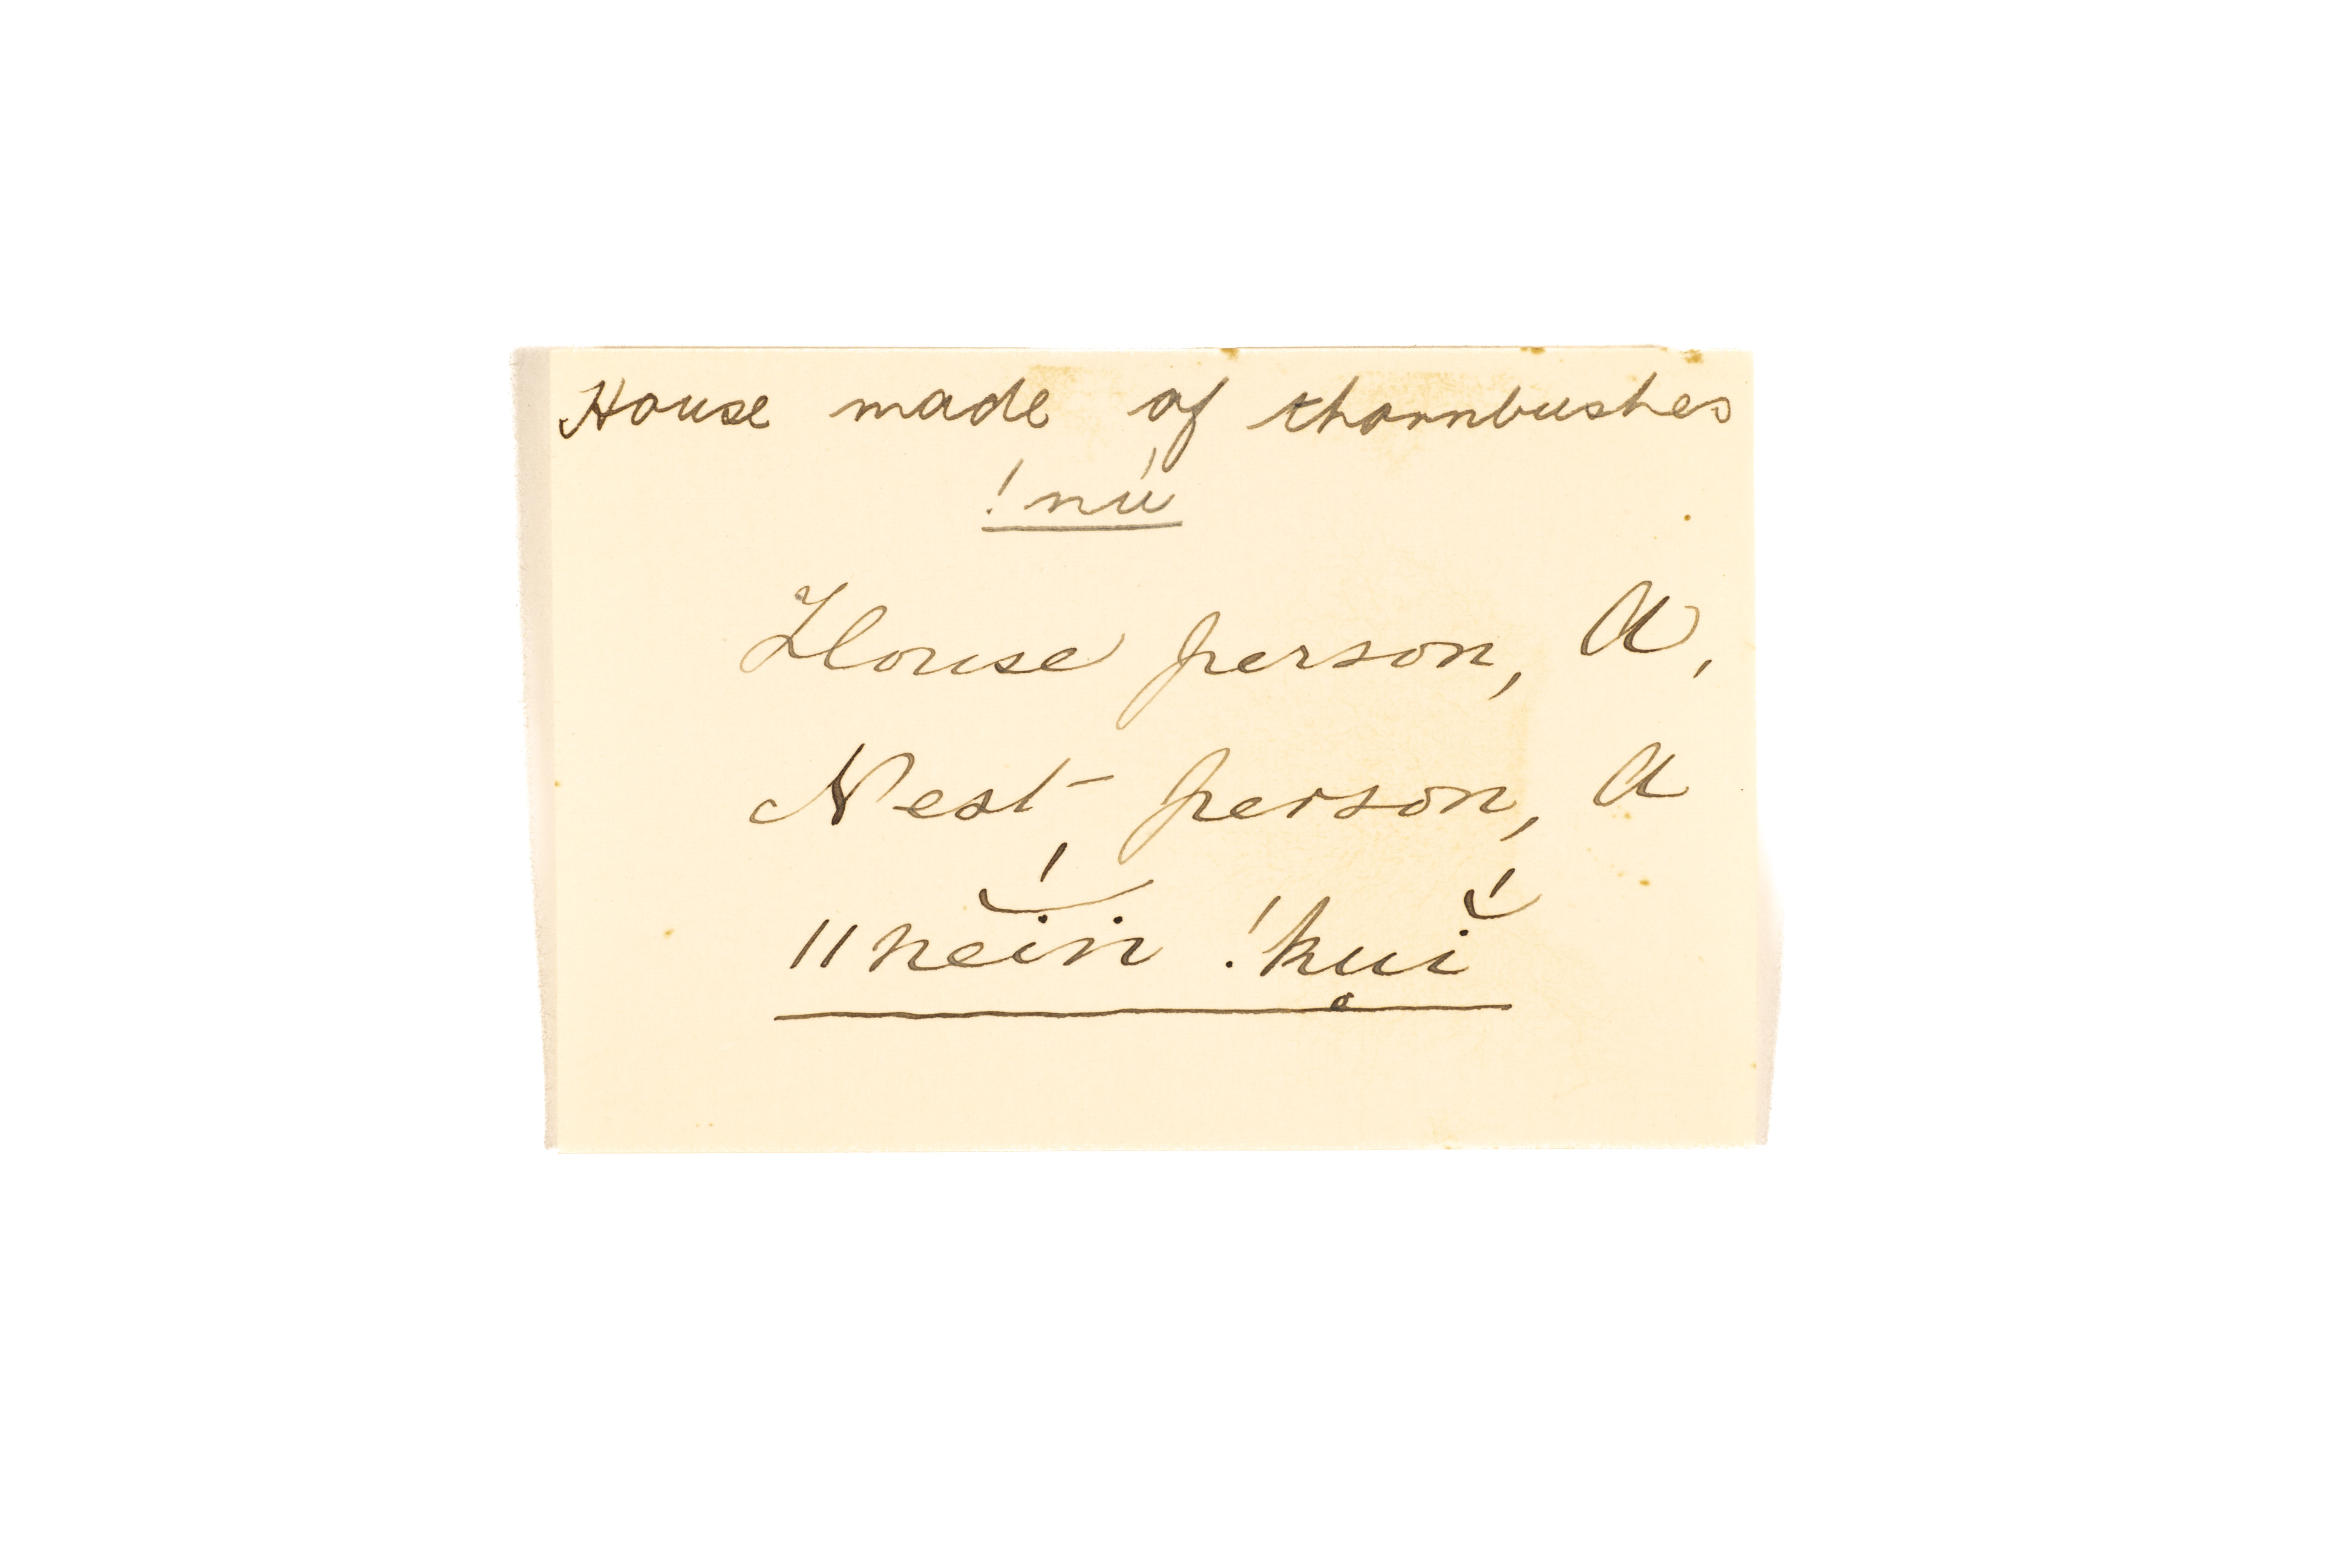 House made of thornbushes
!nú
House person, A,
Nest person, A
ǁneí̯n !ku̥ĭ́